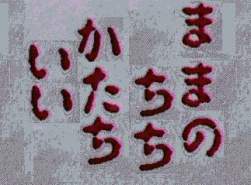 ままの
ちち
かたち
いい